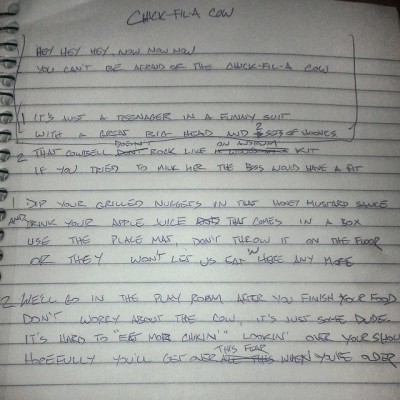 CHICK-FIL-A COW
HEY HEY HEY, NOW NOW NOW
YOU CAN'T BE AFRAID OF THE CHICK-FIL-A COW
1 IT'S JUST A TEENAGER IN A FUNNY SUIT
WITH A GREAT BIG HEAD AND 2 SETS OF
DOESN'T ON A DRUM
2 THAT COWBELL DON'T ROCK LIKE KIT
IF YOU TRIED TO MILK HER THE BOSS WOULD HAVE A FIT
1 DIP YOUR GRILLED NUGGETS IN THAT HONEY MUSTARD SAUCE
AND DRINK YOUR APPLE JUICE THAT COMES IN A BOX
USE THE PLACE MAT, DON'T THROW IT ON THE FLOOR
OR THEY WON'T LET US EAT HERE ANY MORE
2 WE'LL GO IN THE PLAY ROOM, AFTER YOU FINISH YOUR FOOD
DON'T WORRY ABOUT THE COW, IT'S JUST SOME DUDE.
IT'S HARD TO "EAT MOR CHIKIN'" LOOKIN' OVER YOUR SHOU
THIS FEAR
HOPEFULLY YOU'LL GET OVER ALL THIS WHEN YOU'RE OLDER